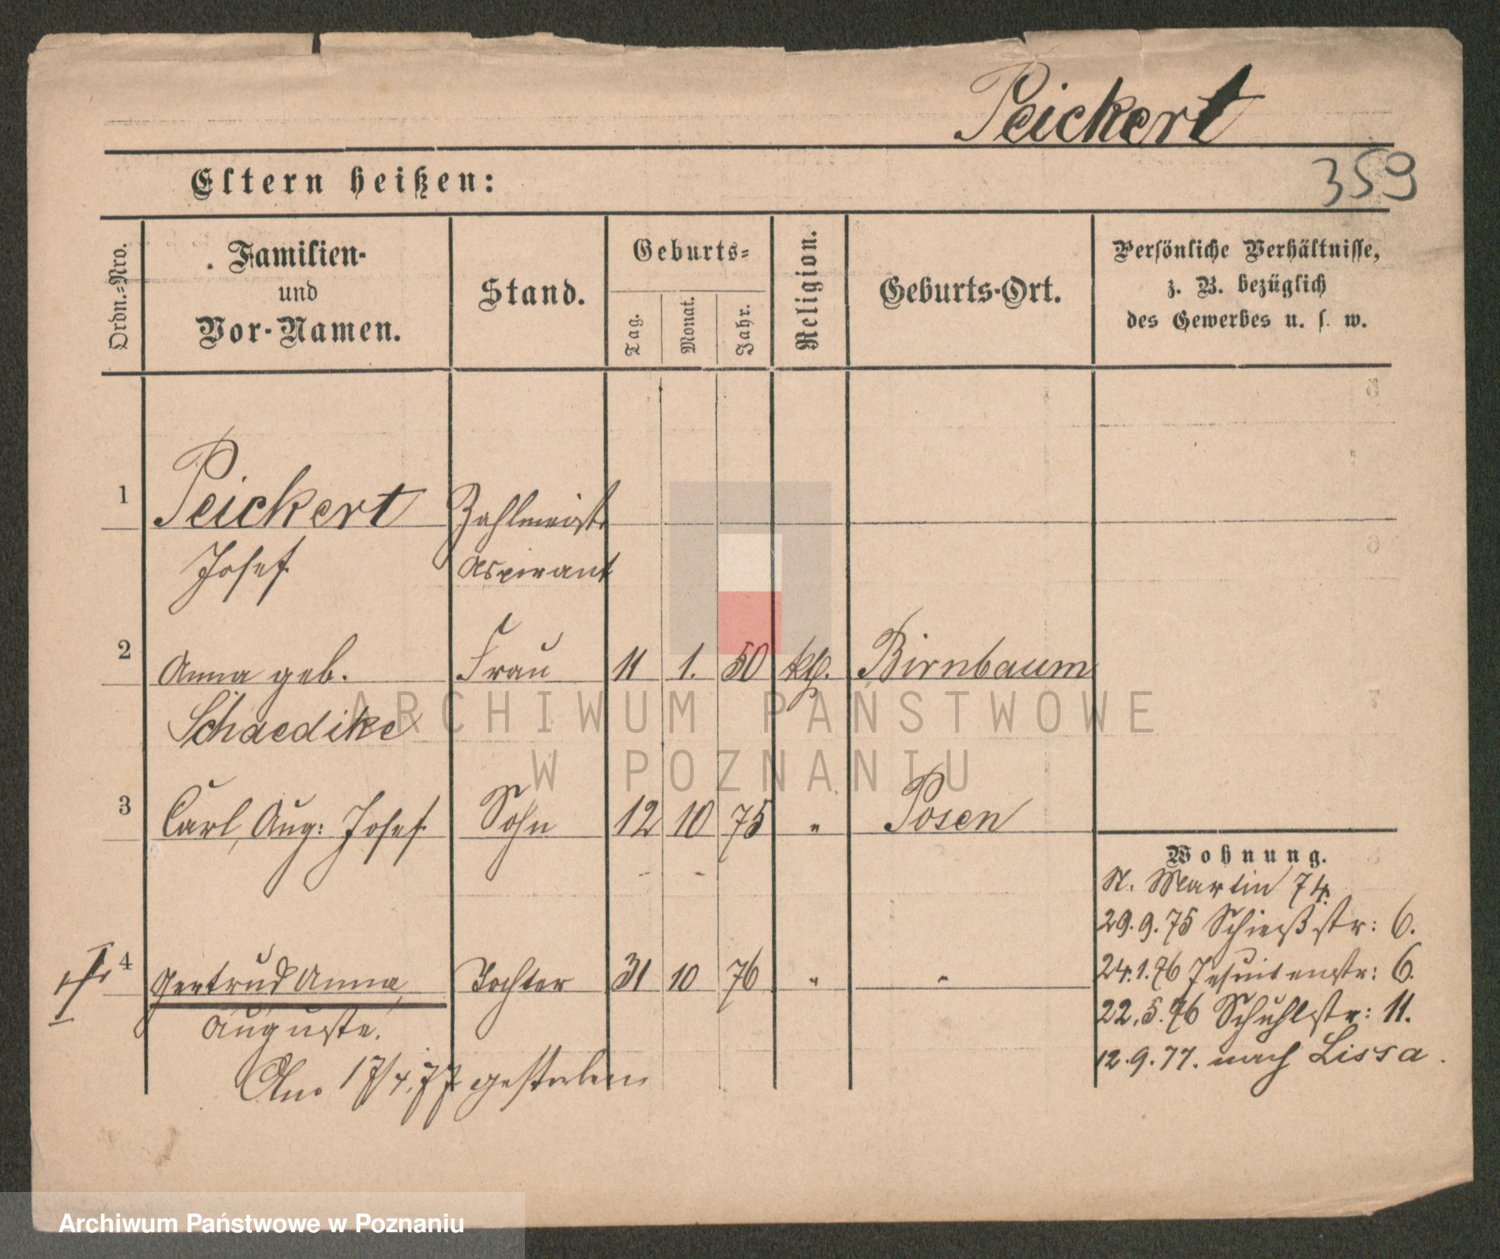 Peickert
359
Eltern heißen:
Ordn.-Nro.
Familien-
und
Vor-Namen.
Stand.
Geburts-
Tag.
Monat.
Jahr.
Religion.
Geburts-Ort.
Persönliche Verhältnisse,
z. B. bezüglich
des Gewerbes u. s. w.
1 Peickert Zahlmeister
Josef Aspirant
2 Anna geb. Frau 11 1. 50 kth. Birnbaum
Schaedike
3 Carl, Aug: Josef Sohn 12 10 75 " Posen
4 Gertrud Anna Tochter 31 10 76 " "
Auguste.
Am 17/4.77 gestorben
Wohnung.
St. Martin 74.
29.9.75 Schießstr: 6.
24.1.76 Jesuitenstr: 6.
22.5.76 Schuhstr: 11.
12.9.77. nach Lissa.
ARCHIWUM PAŃSTWOWE
W POZNANIU
Archiwum Państwowe w Poznaniu